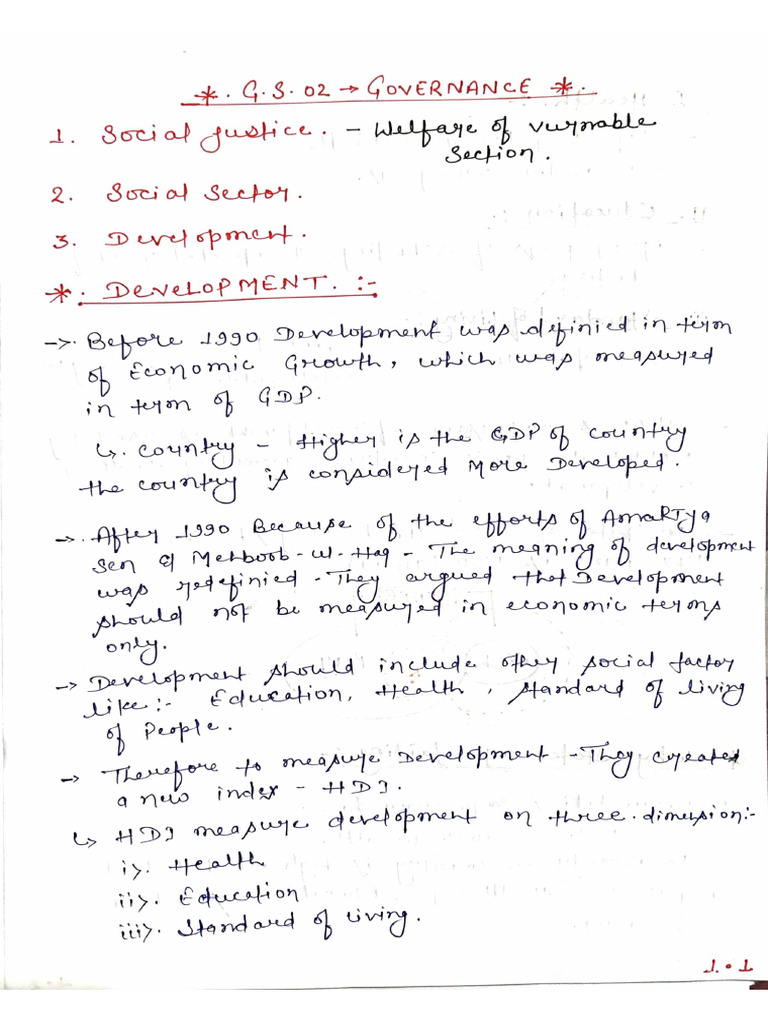 *. G.S. 02 → GOVERNANCE *.
1. Social justice. - Welfare of vurnable
Section.
2. Social Sector.
3. Development.
*. DEVELOPMENT. :-
→. Before 1990 Development was definied in term
of Economic Growth, which was measured
in term of GDP.
↳. Country - Higher is the GDP of country
the country is considered More Developed.
→. After 1990 Because of the efforts of Amartya
Sen & Mehboob-ul-Haq - The meaning of development
was redefinied - They argued that Development
should not be measured in economic terms
only.
→ Development should include other social factor
like:- Education, Health, Standard of living
of People.
→ Therefore to measure Development - They created
a new index - HDI.
↳ HDI measure development on three dimension:-
i>. Health
ii>. Education
iii>. Standard of living.
1.1